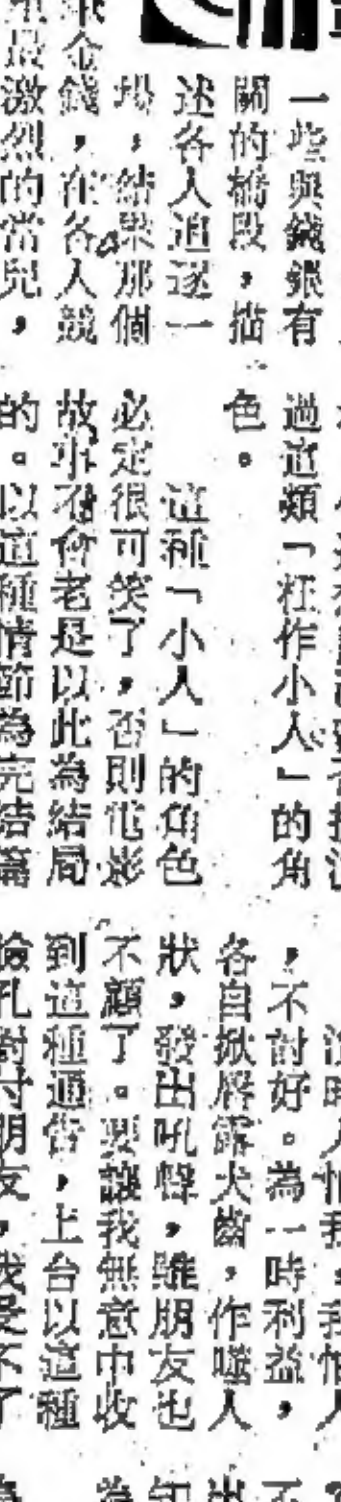 一些與錢銀有
關的橋段，描
述各人追逐一
場，結果那個
金錢，在各人競
最激烈的當兒，
過這類「枉作小人」的角
色。
這種「小人」的角色
必定很可笑了，否則電影
故事不會老是以此為結局
的。以這種情節為完結篇
，不討好。為一時利益，
各自掀唇露犬齒，作噬人
狀，發出吼聲，雖朋友也
不顧了。要讓我無意中收
到這種通告，上台以這種
臉孔對付朋友，我受不了